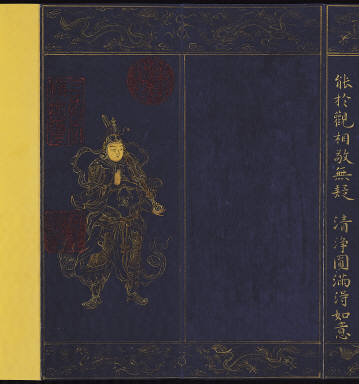 能於觀相敬無疑 清淨圓滿得如意